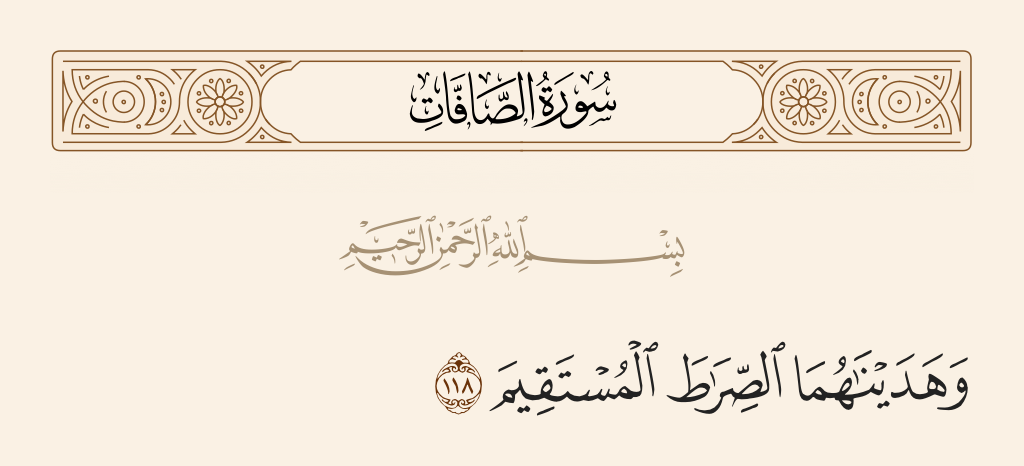 سُورَةُ الصَّافَّاتِ
بِسْمِ ٱللَّهِ ٱلرَّحْمَٰنِ ٱلرَّحِيمِ
وَهَدَيْنَٰهُمَا ٱلصِّرَٰطَ ٱلْمُسْتَقِيمَ ١١٨